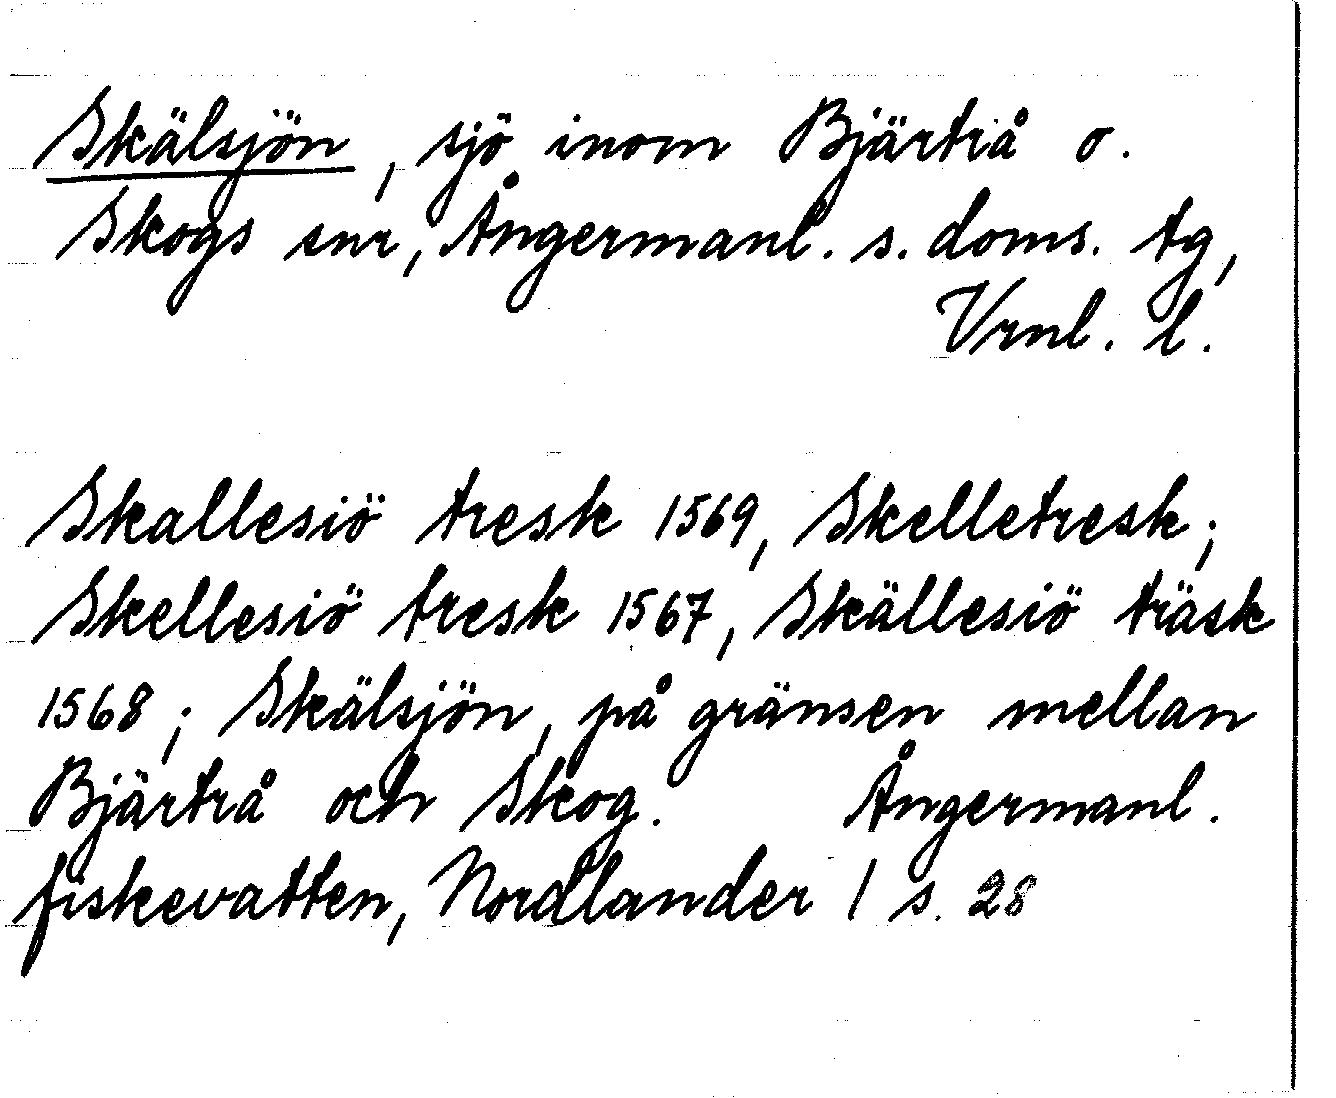 Skälsjön, sjö inom Bjärtrå o.
Skogs snr, Ångermanl. s. doms. tg,
Vrnl. l.
Skallesiö tresk 1569, Skelletresk;
Skellesiö tresk 1567, Skällesiö träsk
1568; Skälsjön, på gränsen mellan
Bjärtrå och Skog. Ångermanl.
fiskevatten, Nordlander 1 s. 28